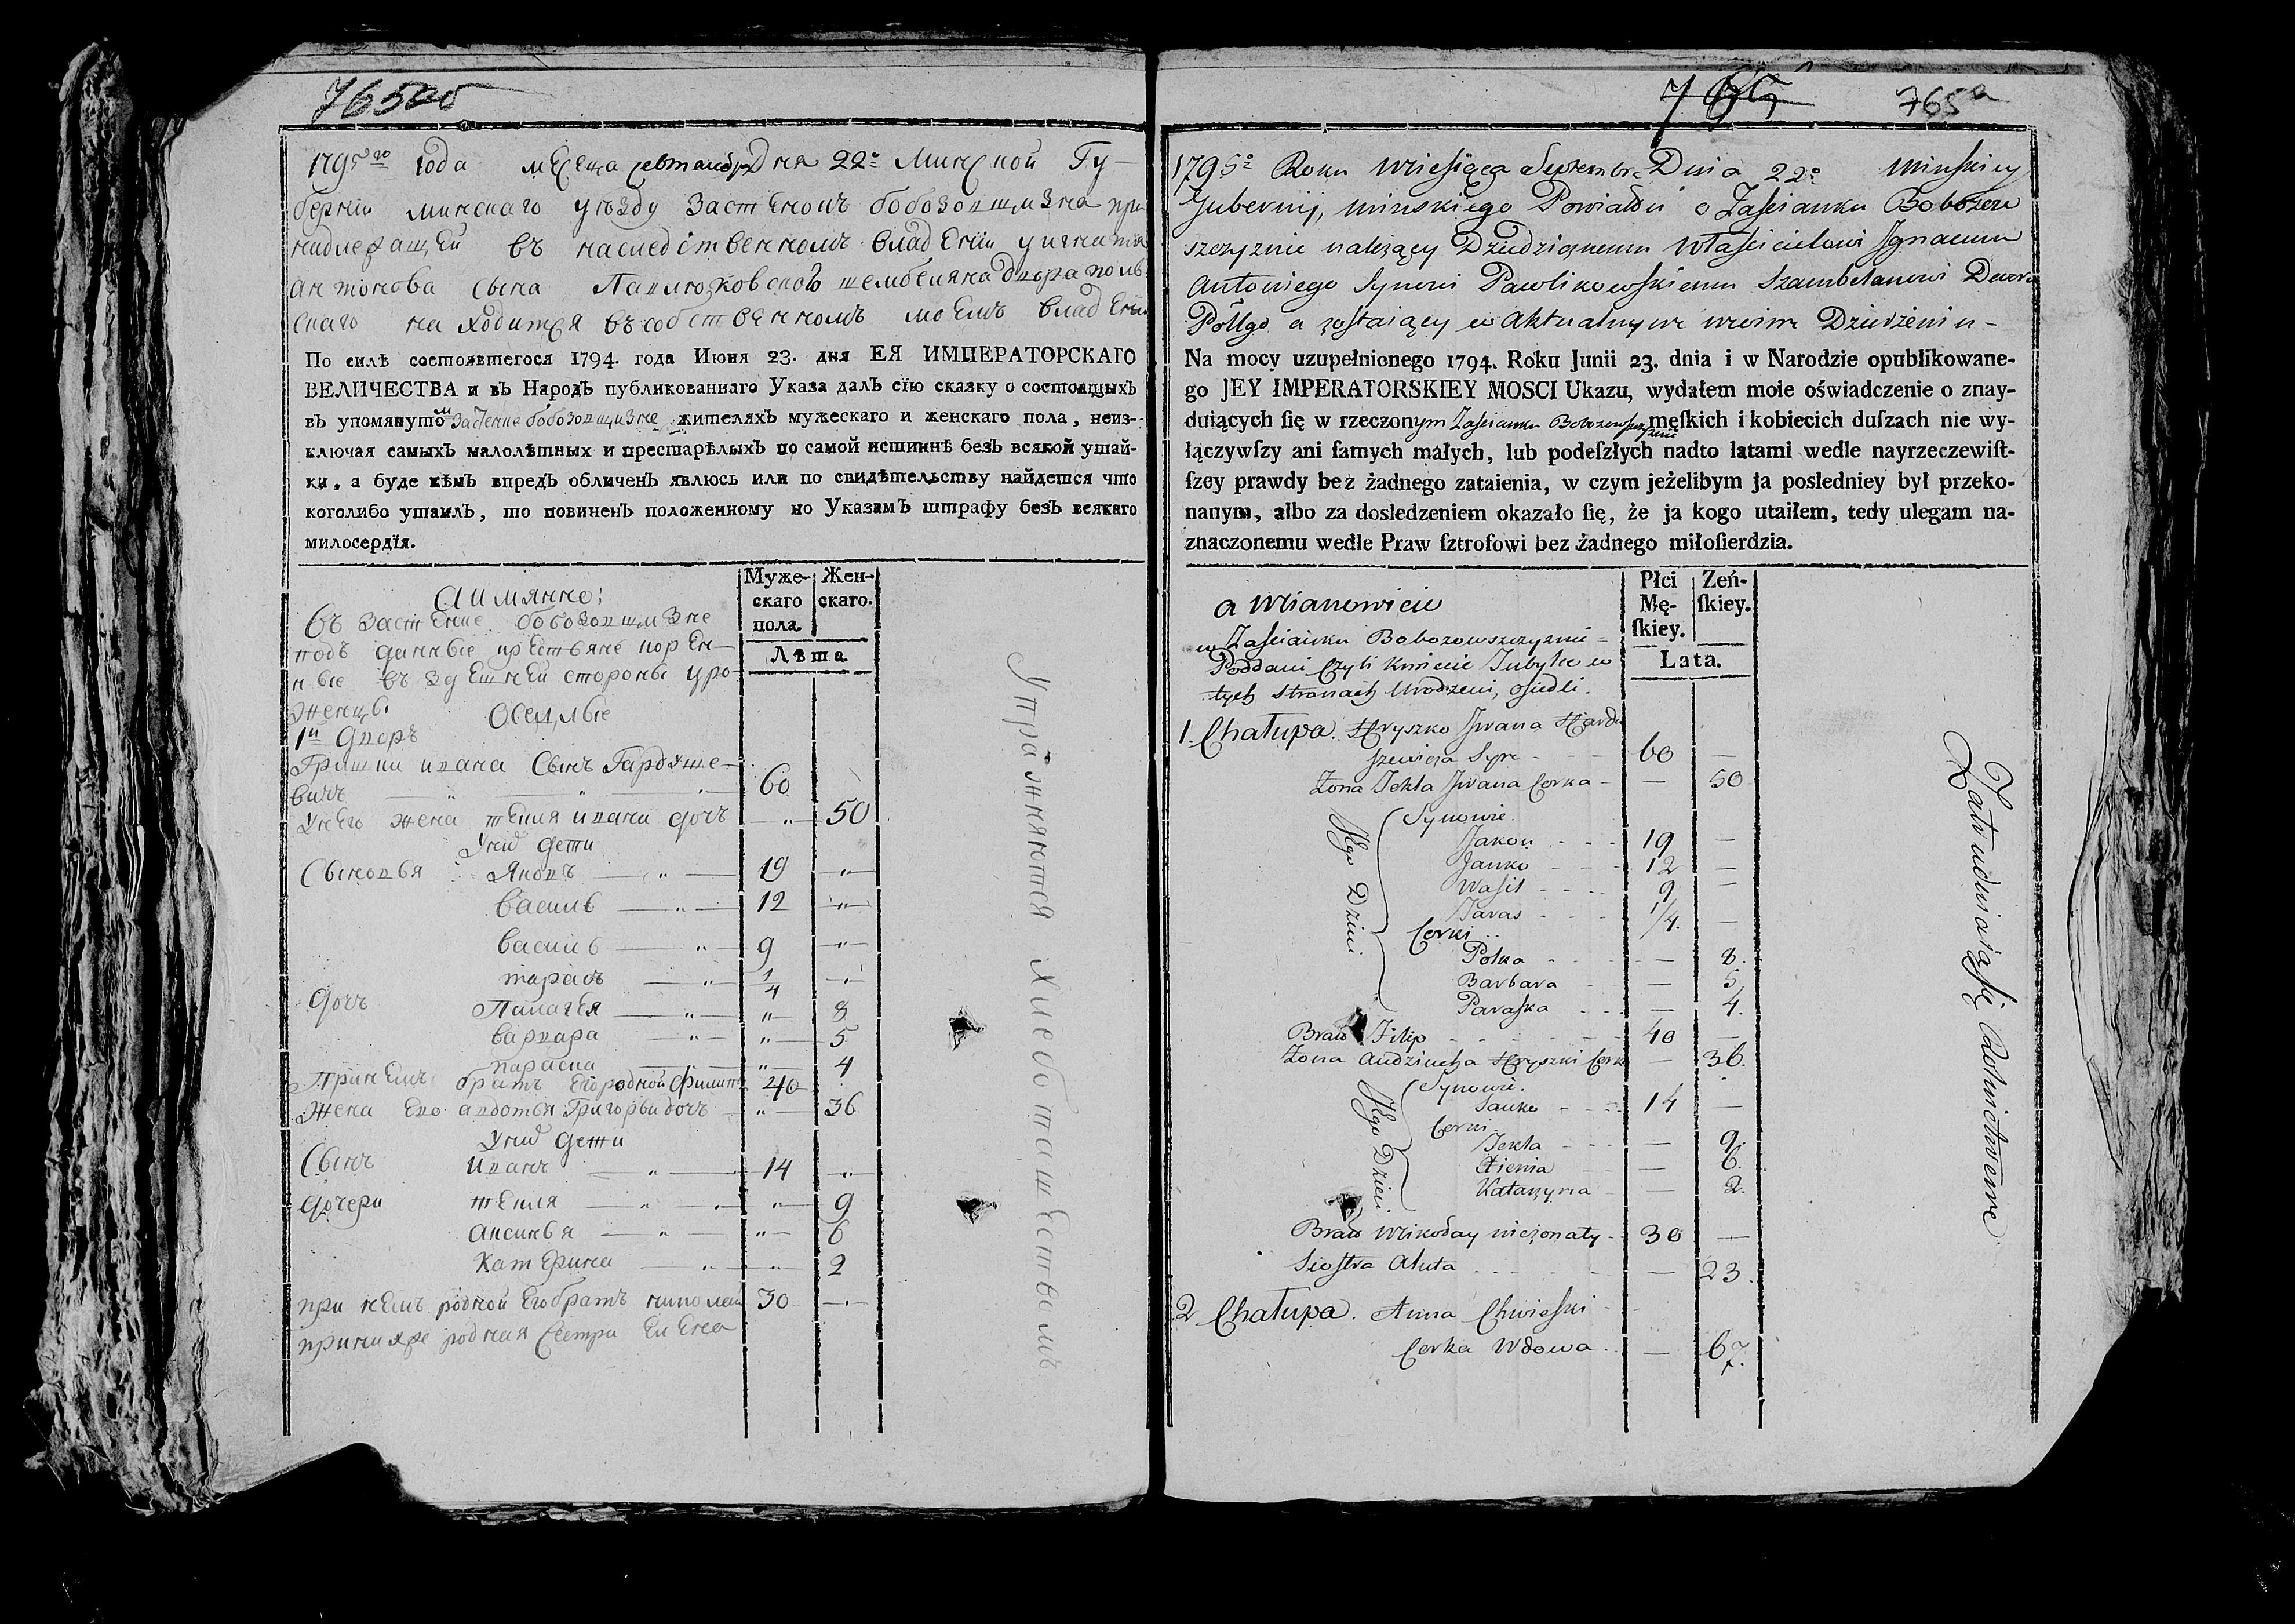 765об
1795го года месеца септембр Дня 22о Минской Гу-
бернии минскаго уезду Застенокъ бобозовшизна при
надлежащей въ наследственномъ владении у игнатия
антонова сына Павлюковского шембеляна Двора поль
скаго находится въ собственномъ моемъ владении
По силѣ состоявшегося 1794. года Июня 23. дня ЕЯ ИМПЕРАТОРСКАГО
ВЕЛИЧЕСТВА и въ Народъ публикованнаго Указа далъ сїю сказку о состоящыхъ
въ упомянутом Застенке бобозовщизне жителяхъ мужескаго и женскаго пола, неиз-
ключая самыхъ малолѣтныхъ и престарѣлыхъ по самой истиннѣ безъ всякой утай-
ки, а буде кѣмъ впредъ обличенъ явлюсь или по свидѣтельству найдется что
коголибо утаилъ, то повиненъ положенному по Указамъ штрафу безъ всякаго
милосердїя.
аимянно:
Муже-скаго пола
Жен-скаго.
Лѣта
въ застенке бобозовшизне
подъ данные крестьяне корен-
ные въ здешней стороны уро-
женцы оселлые
1й дворъ
Гришки ивана сынъ Гардуше-
вичъ 60
У него жена текля ивана дочъ 50
У них дети
Сыновья Яковъ 19
василь 12
василь 9
тарасъ 1/4
дочъ Палагея 8
варвара 5
параска 4
При немъ братъ его родной филипъ 40
Жена его авдотья Григорьи дочъ 36
У них дети
Сынъ иванъ 14
дочери текля 9
аксинья 6
Катерина 2
при немъ родной его братъ николай 30
при них же родная сестра елена
Упражняются хлебопашествомъ
765
765а
1795o Roku Miesiąca Septembr. Dnia 22o Minskiey
Gubernij, Minskiego Powiatu o Zascianku Bobozow
szczyznie należący Dziedzicznemu Właścicielowi Jgnacemu
Antoniego Synowi Pawlikowskiemu Szambelanowi Dwora
Polłgo a zostaiący w Aktualnym moim Dzierżeniu -
Na mocy uzupełnionego 1794. Roku Junii 23. dnia i w Narodzie opublikowane-
go JEY IMPERATORSKIEY MOSCI Ukazu, wydałem moie oświadczenie o znay-
duiących ſię w rzeczonym Zascianku Bobozowszczyznie męſkich i kobiecich duſzach nie wy-
łączywſzy ani ſamych małych, lub podeſzłych nadto latami wedle nayrzeczewiſt-
ſzey prawdy bez żadnego zataienia, w czym jeżelibym ja posledniey był przeko-
nanym, albo za dosledzeniem okazało ſię, że ja kogo utaiłem, tedy ulegam na-
znaczonemu wedle Praw ſztrofowi bez żadnego miłoſierdzia.
a Mianowicie
Płci Mę-ſkiey.
Zeń-ſkiey.
Lata.
w Zascianku Bobozowszczyznie
Poddani Czyli Kmiecie Jubylce w
tych stronach Urodzeni, osiedli.
1. Chałupa. Hryszko Jwana Hardu
szewicza Syn 60 —
Zona Tekla Jwana Corka — 50
Jego Dzieci
Synowie.
Jakow 19 —
Janko 12 —
Wasil 9 —
Taras 1/4. —
Corki
Polka — 8.
Barbara — 5
Paraska — 4.
Brat Filip 40 —
Zona Audziucha Hryszki Cork — 36.
Jego Dzieci
Synowie.
Janko 14 —
Corki
Tekla — 9.
Xienia — 6.
Katarzyna — 2.
Brat Mikołay nieżonaty 30 —
Siostra Aluta — 23.
2 Chałupa. Anna Chwieski
Corka Wdowa — 67.
Zatrudniaią się Rolnictwem